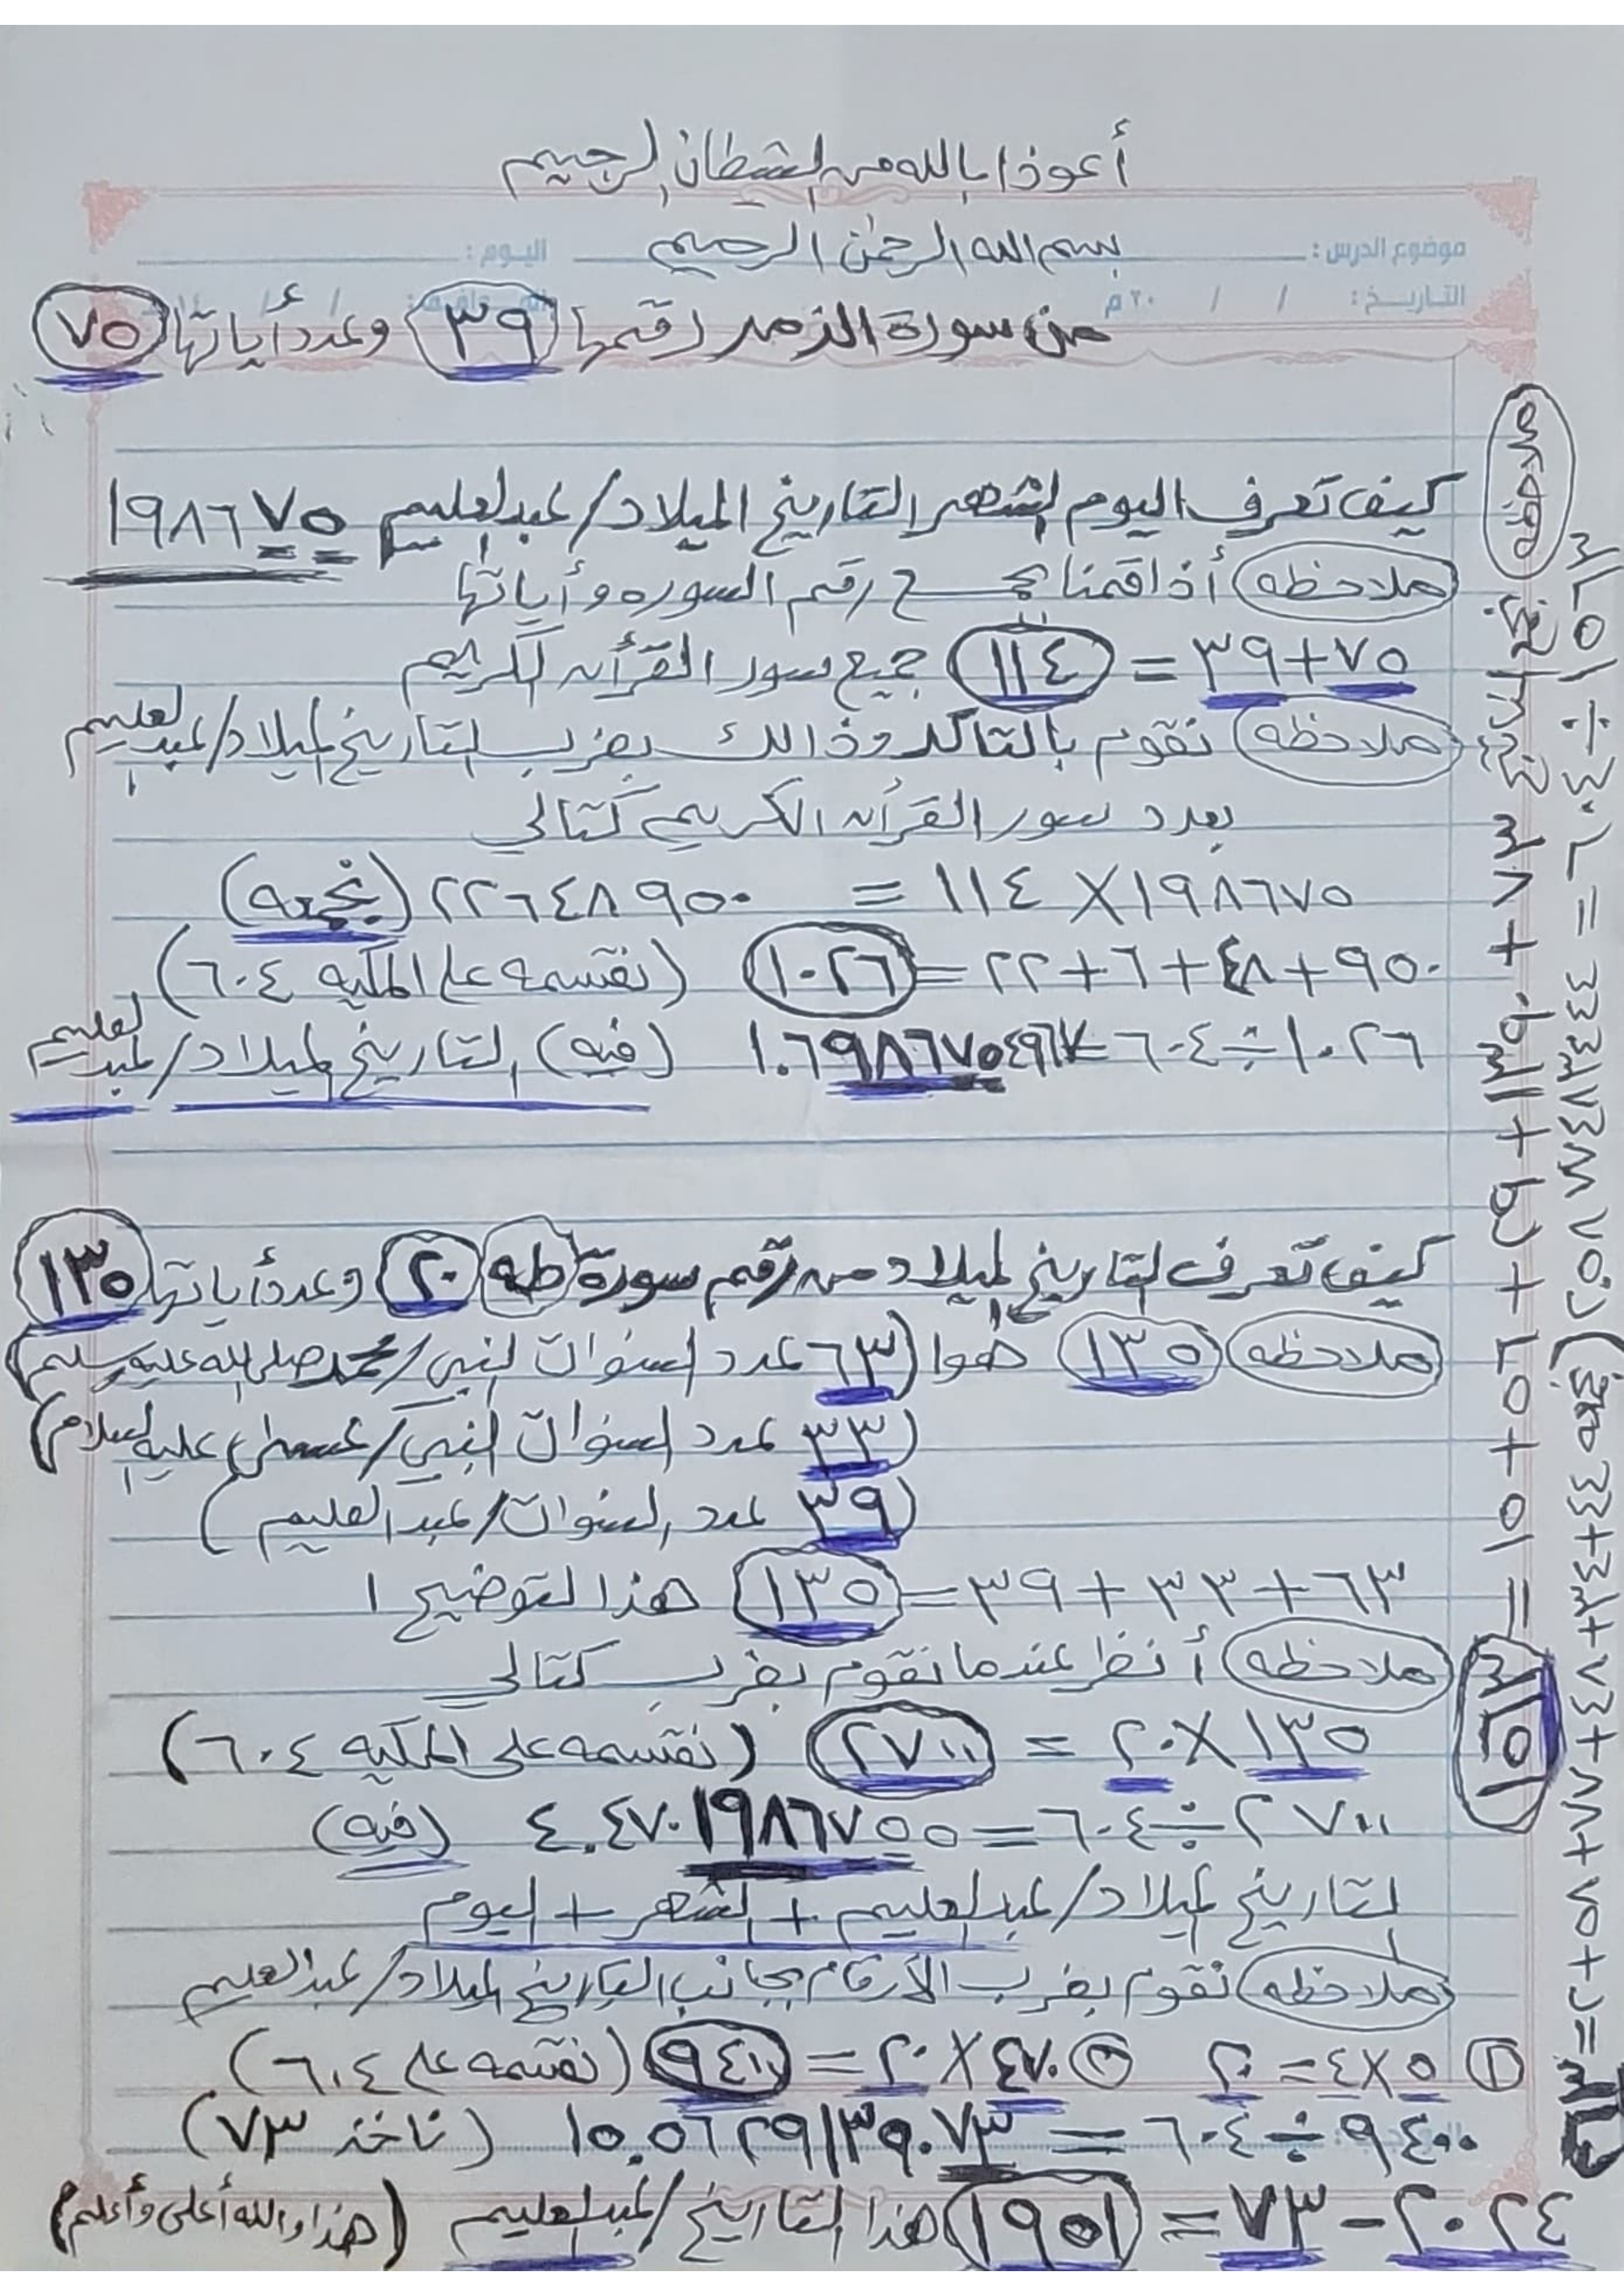 أعوذا بالله من الشطان الرجيم
بسم الله الرحمن الرحيم
موضوع الدرس : اليوم :
التاريخ : / / ٢٠ م
من سورة الزمر رقمها ٣٩ وعدد أياتها ٧٥
كيف تعرف اليوم الشهر التاريخ الميلاد/عبدالعليم ١٩٨٦٧٥
ملاحظه أذا قمنا بجمع رقم السوره وأياتها
٧٥+٣٩ = ١١٤ جميع سور القرأن الكريم
ملاحظه نقوم بالتاكد وذالك بضرب التاريخ الميلاد/عبدالعليم
بعدد سور القرأن الكريم كتالي
١٩٨٦٧٥ X ١١٤ = ٢٢٦٤٨٩٥٠ (نجمعه)
٩٥٠+٤٨+٦+٢٢=١٠٢٦ (نقسمه على المكيه ٦٠٤)
١٠٢٦÷٦٠٤=١.٦٩٨٦٧٥٤٩٦٧ (فيه) التاريخ الميلاد/عبدالعليم
كيف تعرف التاريخ الميلاد من رقم سورة طه ٢٠ وعدد أياتها ١٣٥
ملاحظه ١٣٥ هوا (٦٣ عدد السنوات النبي/محمد صلى الله عليه وسلم)
(٣٣ عدد السنوات النبي/عيسى عليه السلام)
(٣٩ عدد السنوات/عبدالعليم)
٦٣+٣٣+٣٩=١٣٥ هذا التوضيح ١
ملاحظه أنظر عندما نقوم بضرب كتالي
١٣٥ X ٢٠ = ٢٧٠٠ (نقسمه على المكيه ٦٠٤)
٢٧٠٠÷٦٠٤=٤.٤٧٠١٩٨٦٧٥٥ (فيه)
التاريخ الميلاد/عبدالعليم + الشهر + اليوم
ملاحظه نقوم بضرب الأرقام بجانب التاريخ الميلاد/عبدالعليم
① ٥X٤=٢٠ ② ٤٧٠X٢٠=٩٤٠٠ (نقسمه على ٦٠٤)
٩٤٠٠÷٦٠٤=١٥.٥٦٢٩١٣٩٠٧٣ (ناخذ ٧٣)
٢٠٢٤-٧٣=١٩٥١ هذا التاريخ/عبدالعليم (هذا والله أعلى وأعلم)